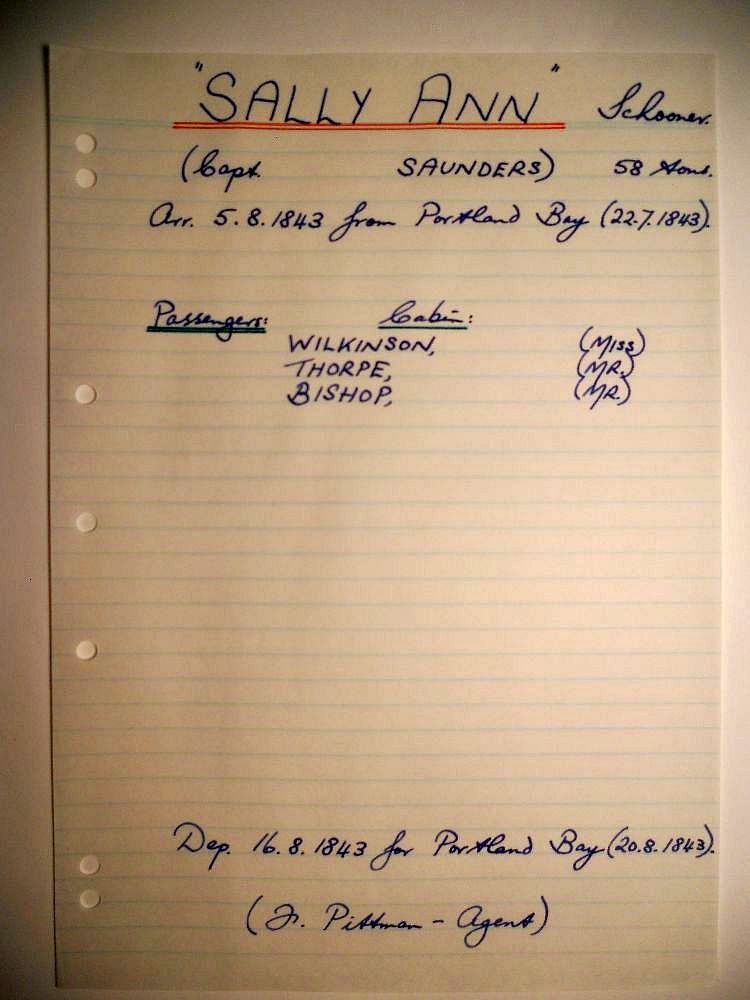 "SALLY ANN" Schooner.
(Capt. SAUNDERS) 58 tons.
Arr. 5.8.1843 from Portland Bay (22.7.1843).
Passengers: Cabin:
WILKINSON, (MISS)
THORPE, (MR.)
BISHOP, (MR.)
Dep. 16.8.1843 for Portland Bay (20.8.1843).
(J. Pittman - Agent)